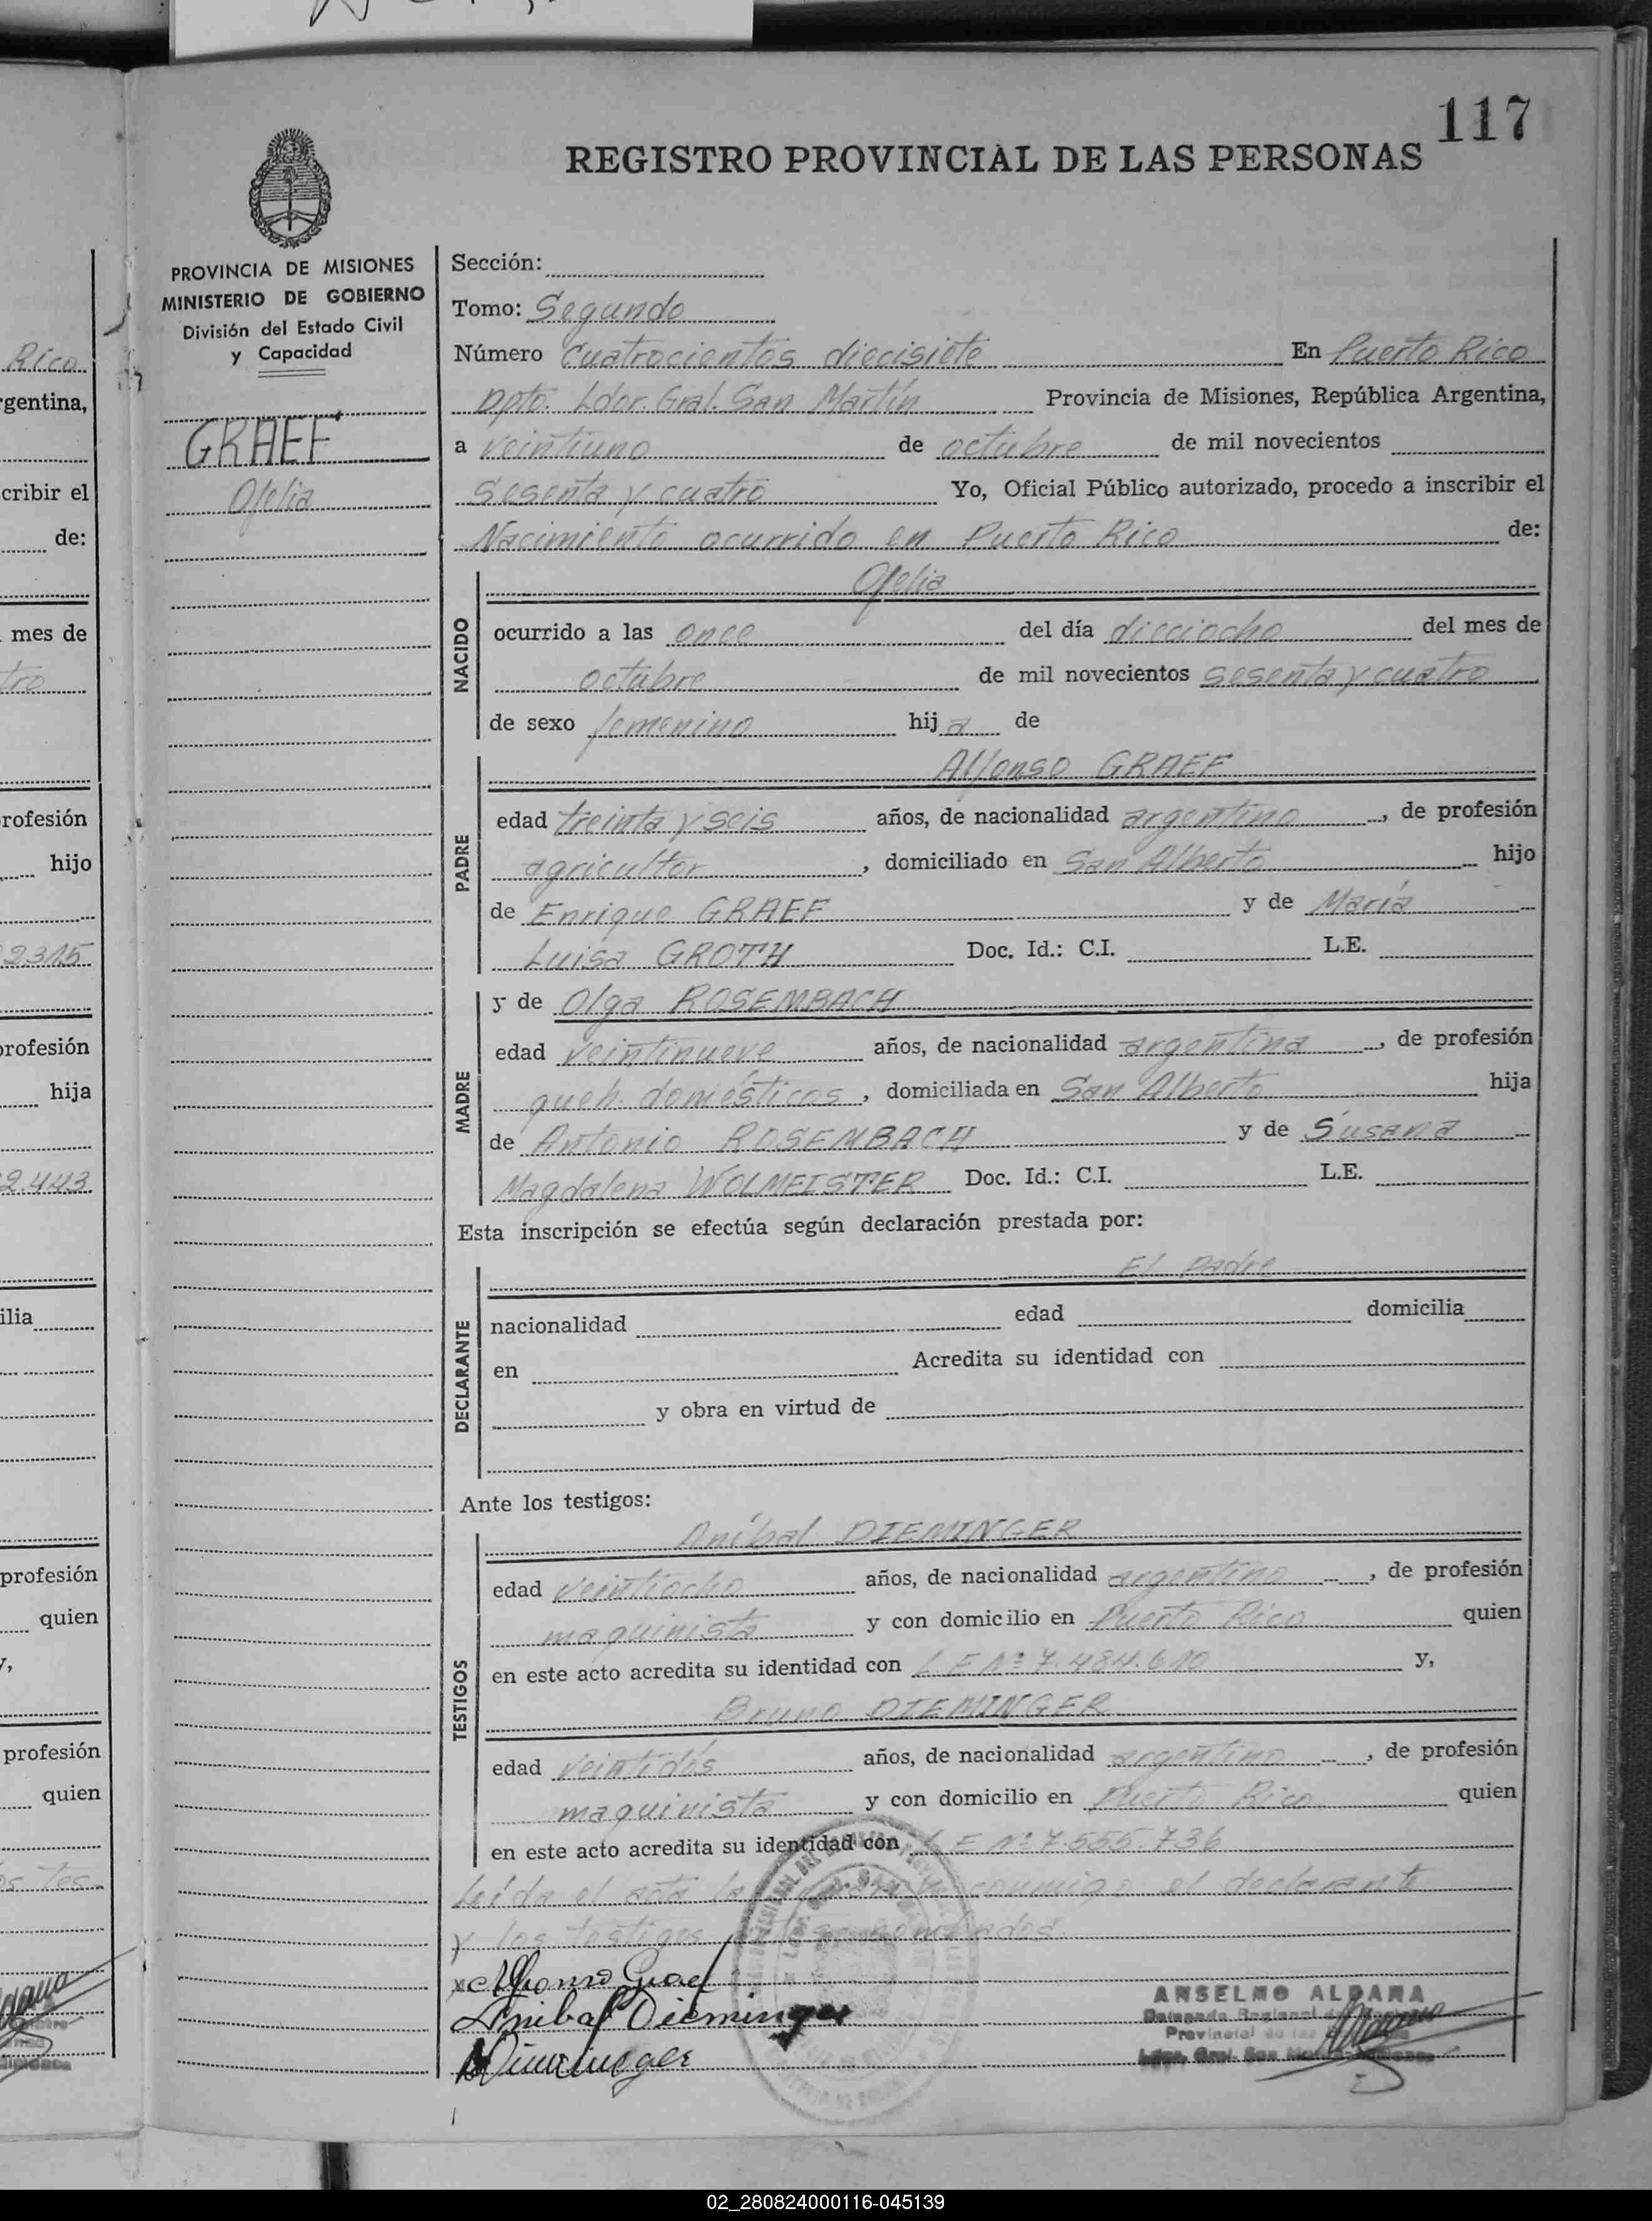 117
REGISTRO PROVINCIAL DE LAS PERSONAS
PROVINCIA DE MISIONES
MINISTERIO DE GOBIERNO
División del Estado Civil
y Capacidad
GRAEF
Ofelia
Sección:
Tomo: Segundo
Número Cuatrocientos diecisiete En Puerto Rico
Dpto. Ldor. Gral. San Martín Provincia de Misiones, República Argentina,
a veintiuno de octubre de mil novecientos
Sesenta y cuatro Yo, Oficial Público autorizado, procedo a inscribir el
Nacimiento ocurrido en Puerto Rico de:
NACIDO
Ofelia
ocurrido a las once del día dieciocho del mes de
octubre de mil novecientos sesenta y cuatro
de sexo femenino hija de
PADRE
Alfonso GRAEF
edad treinta y seis años, de nacionalidad argentino, de profesión
agricultor, domiciliado en San Alberto hijo
de Enrique GRAEF y de María
Luisa GROTH Doc. Id.: C.I. L.E.
MADRE
y de Olga ROSEMBACH
edad veintinueve años, de nacionalidad argentina, de profesión
queh. domésticos, domiciliada en San Alberto hija
de Antonio ROSEMBACH y de Susana
Magdalena WOLMEISTER Doc. Id.: C.I. L.E.
Esta inscripción se efectúa según declaración prestada por:
DECLARANTE
El padre
nacionalidad edad domicilia
en Acredita su identidad con
y obra en virtud de
Ante los testigos:
TESTIGOS
Aníbal DIEMINGER
edad veintiocho años, de nacionalidad argentino, de profesión
maquinista y con domicilio en Puerto Rico quien
en este acto acredita su identidad con L.E Nº 7.484.610 y,
Bruno DIEMINGER
edad veintidós años, de nacionalidad argentino, de profesión
maquinista y con domicilio en Puerto Rico quien
en este acto acredita su identidad con L E Nº 7.555.736
Leída el acta la conmigo el declarante
y los testigos
Alfonso Graef
Anibal Dieminger
Dieminger
ANSELMO ALDANA
Delegado Regional
Provincial de las
Ldor. Gral. San
Rico
rgentina,
cribir el
de:
mes de
tro
rofesión
hijo
2315
profesión
hija
2.443
ilia
profesión
quien
y,
profesión
quien
02_280824000116-045139